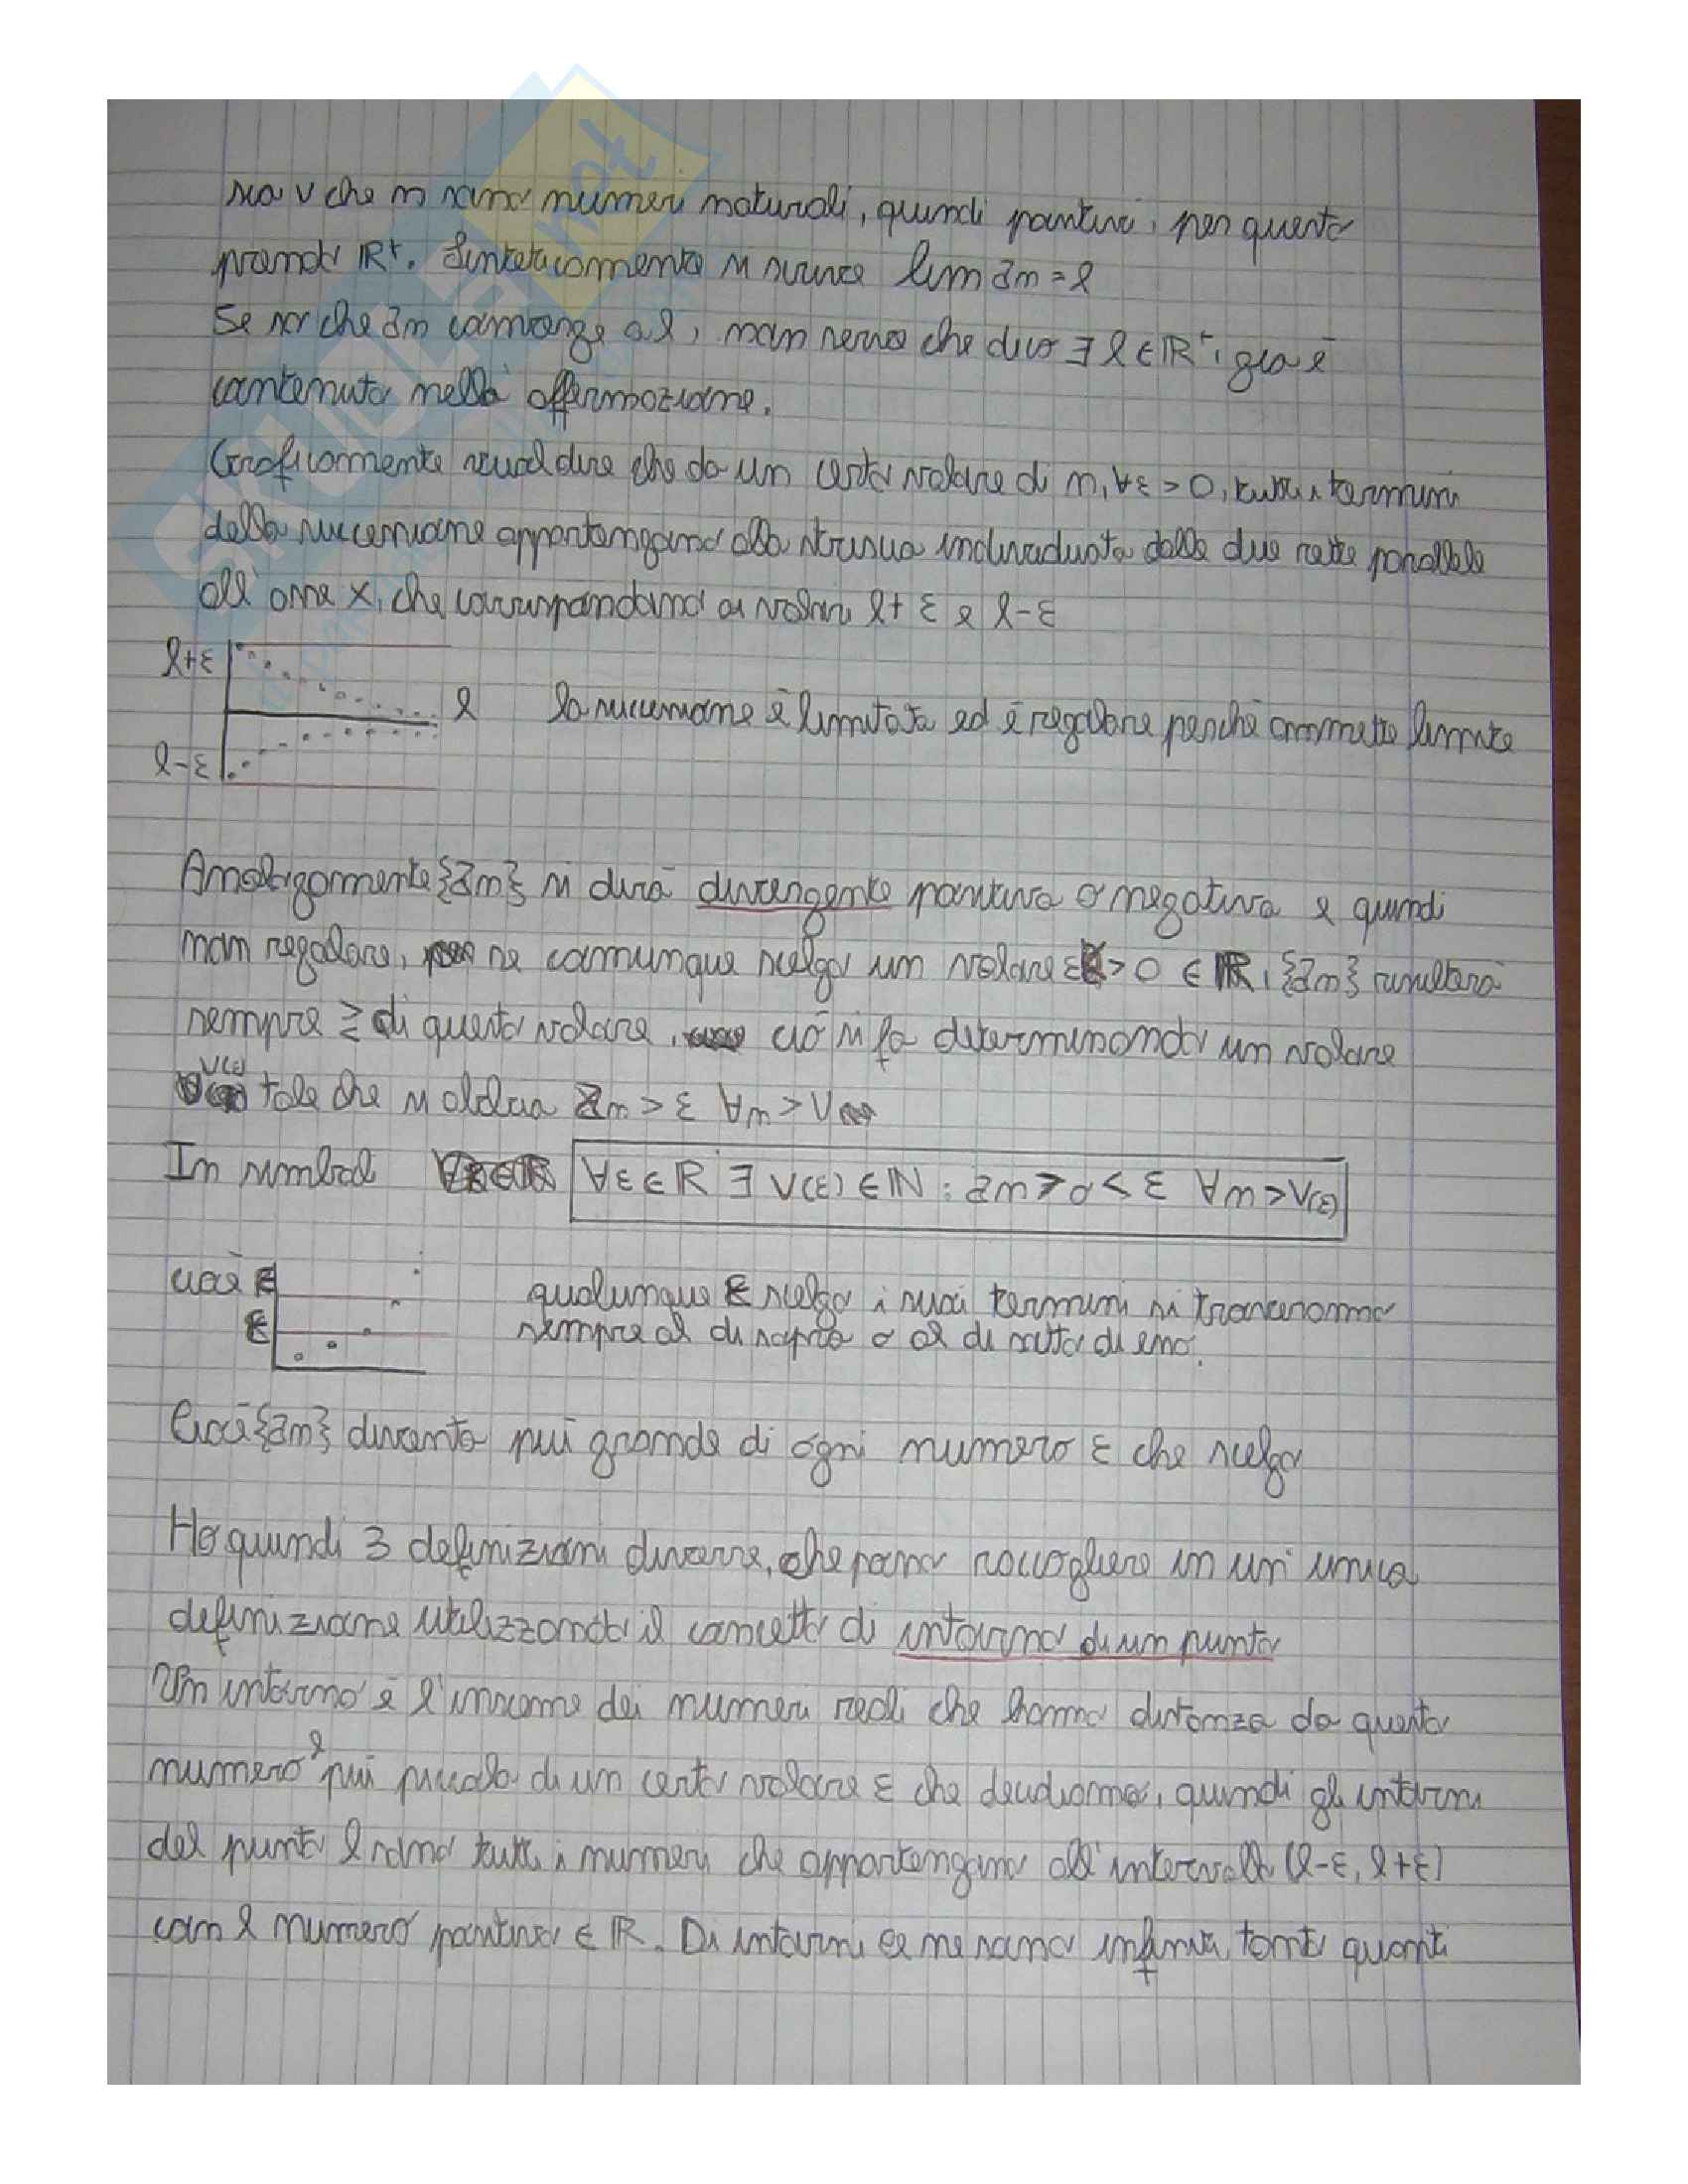 sia ν che n sono numeri naturali, quindi positivi, per questo
prendo ℝ⁺. Sinteticamente si scrive lim an = l
Se so che an converge a l, non serve che dico ∃ l ∈ ℝ⁺, già è
contenuto nella affermazione.
Graficamente vuol dire che da un certo valore di n, ∀ε > 0, tutti i termini
della successione appartengono alla striscia individuata dalle due rette parallele
all'asse x, che corrispondono ai valori l+ε e l-ε
l+ε
l la successione è limitata ed è regolare perché ammette limite
l-ε
Analogamente {an} si dirà divergente positiva o negativa e quindi
non regolare, se comunque scelgo un valore ε > 0 ∈ ℝ, {an} risulterà
sempre ≷ di questo valore, ciò si fa determinando un valore
ν(ε) tale che si abbia an > ε ∀n > ν
In simboli ∀ε ∈ ℝ ∃ ν(ε) ∈ ℕ : an > o < ε ∀n > ν(ε)
cioè ε
ε
qualunque ε scelgo i suoi termini si troveranno
sempre al di sopra o al di sotto di esso.
Cioè {an} diventa più grande di ogni numero ε che scelgo
Ho quindi 3 definizioni diverse, che posso raccogliere in un'unica
definizione utilizzando il concetto di intorno di un punto
Un intorno è l'insieme dei numeri reali che hanno distanza da questo
numero l più piccola di un certo valore ε che decidiamo, quindi gli intorni
del punto l sono tutti i numeri che appartengono all'intervallo (l-ε, l+ε)
con l numero positivo ∈ ℝ. Di intorni ce ne sono infiniti, tanti quanti
SKUOLA.net